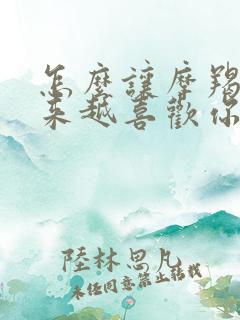 怎麼讓摩羯
來越喜歡你
陸林思凡
未經同意禁止轉載